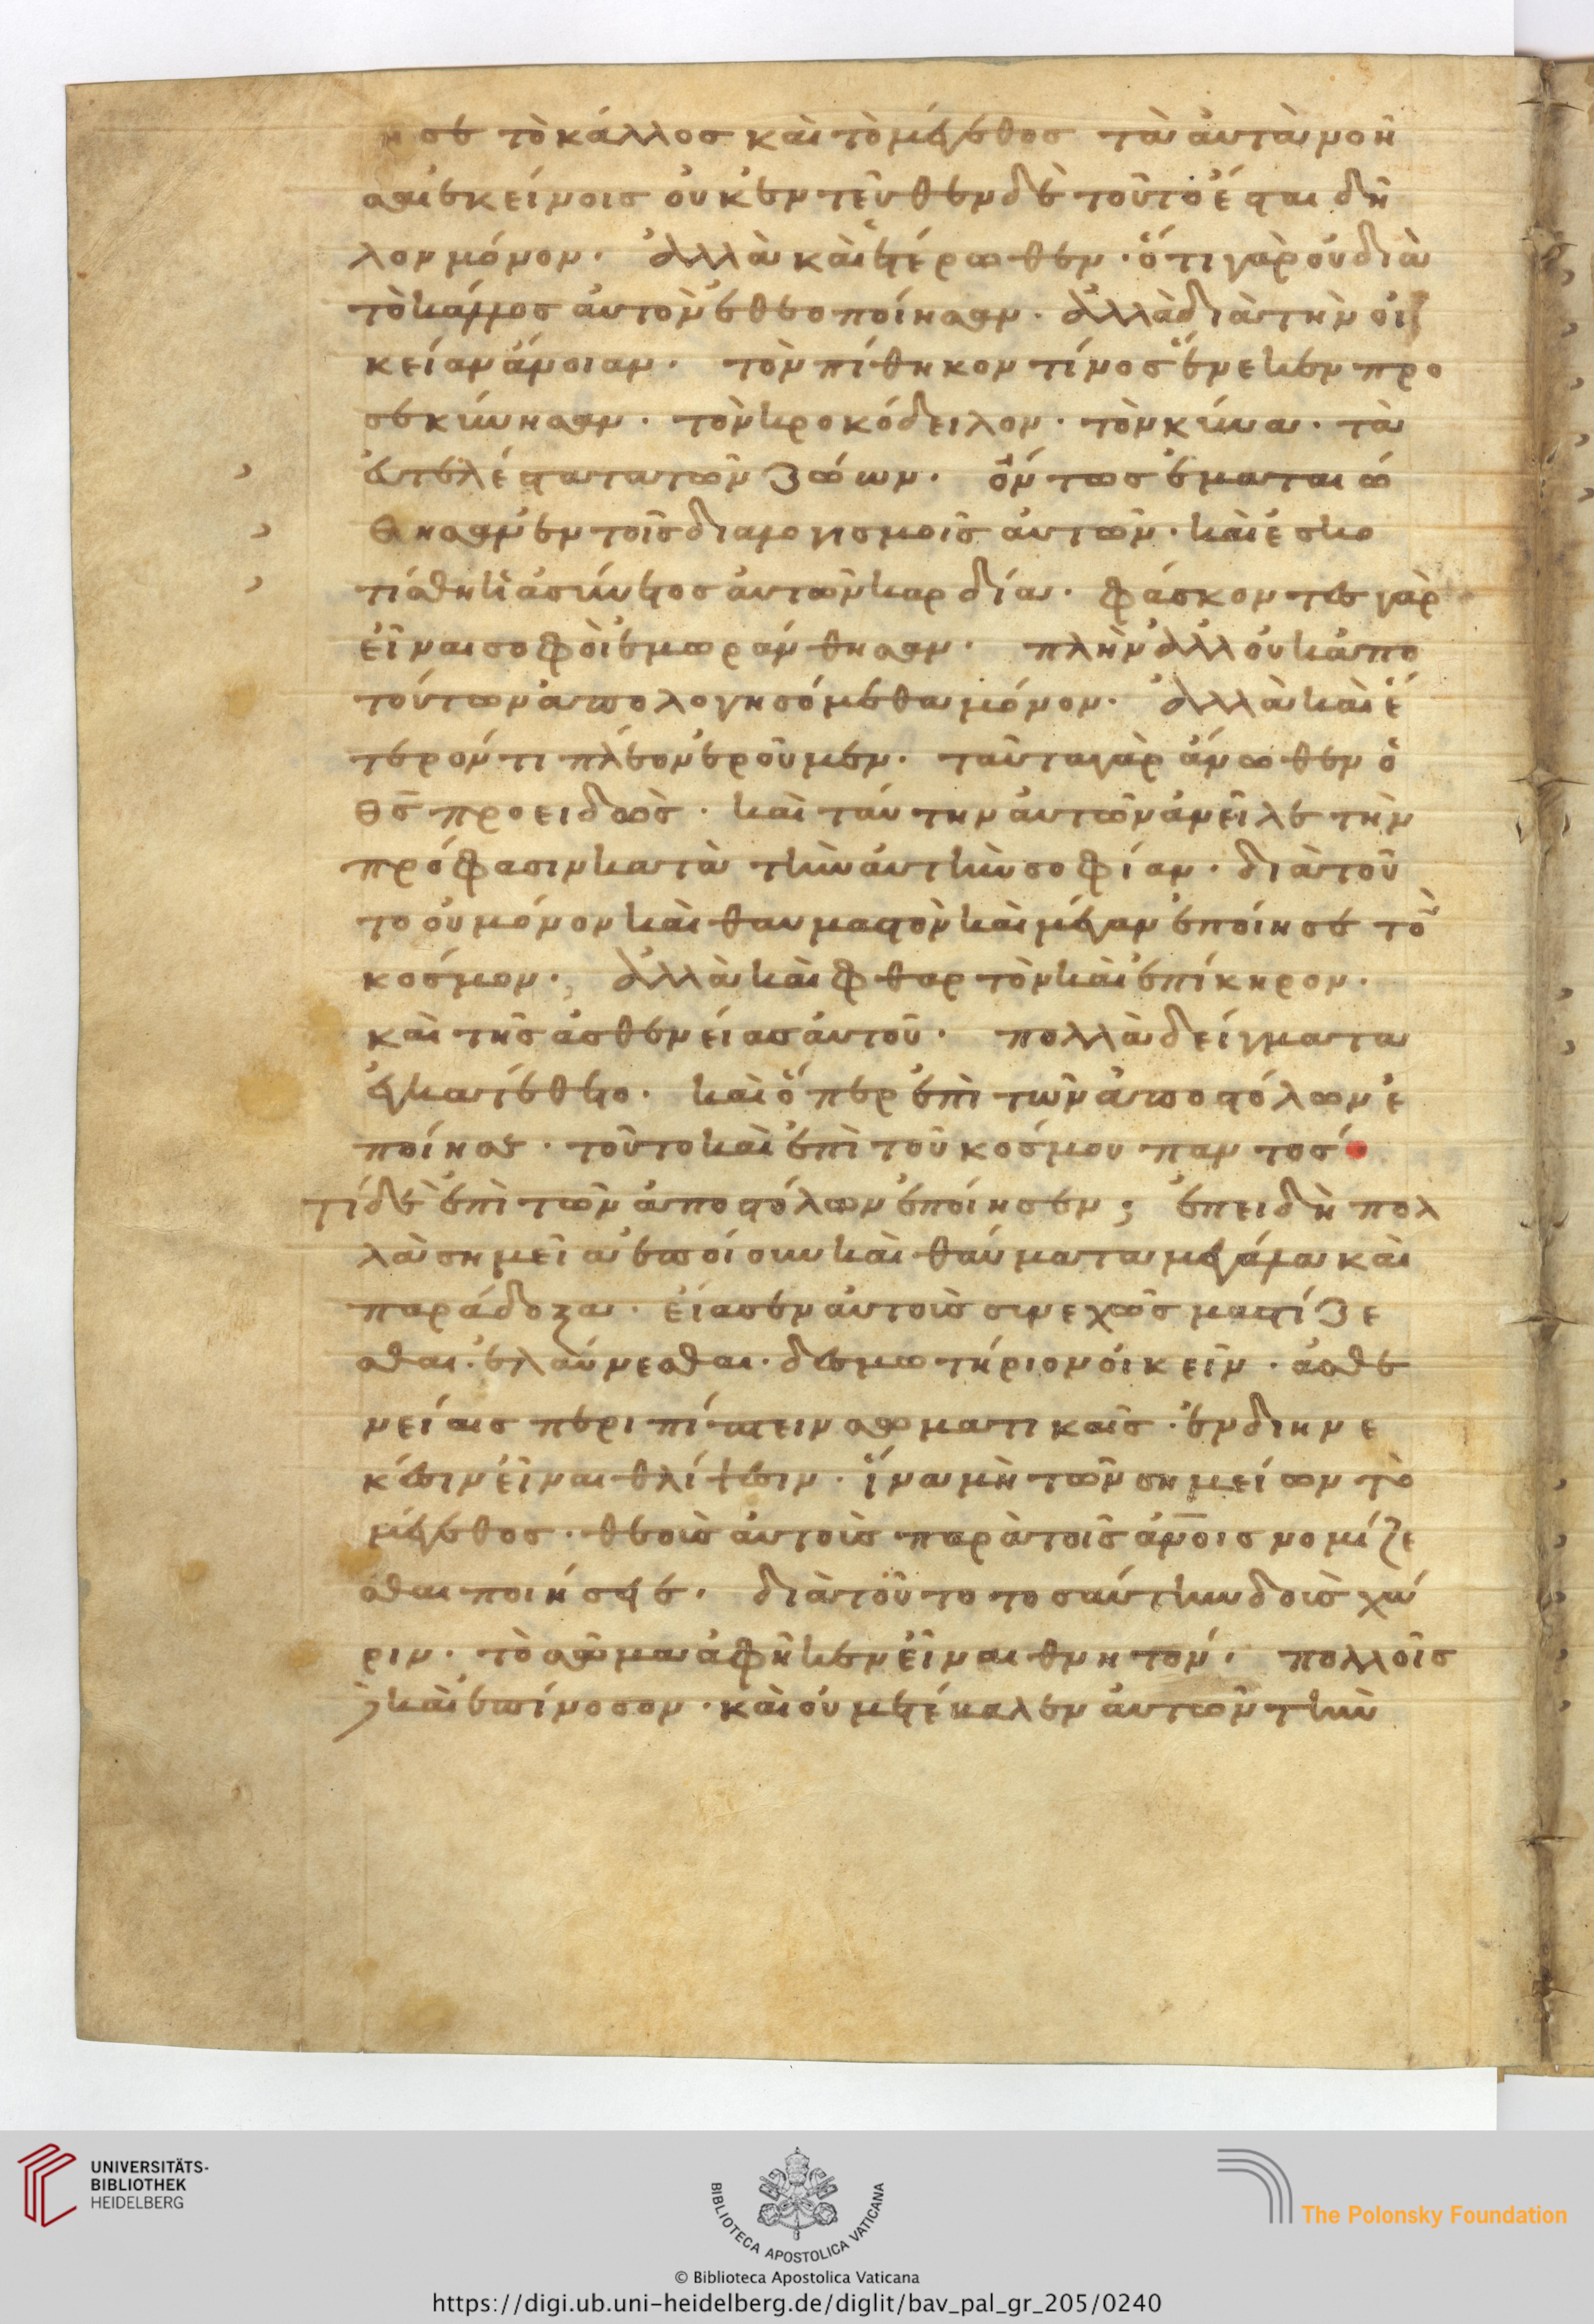 ησε τὸ κάλλος καὶ τὸ μέγεθος τὰ αὐτὰ νοῆ
σαι ἐκείνοις οὐκ ἐντεῦθεν δὲ τοῦτο ἔσται δῆ
λον μόνον· ἀλλὰ καὶ ἑτέρωθεν· ὅτι γὰρ οὐ διὰ
τὸ κάλλος αὐτὸν ἐθεοποίησαν· ἀλλὰ διὰ τὴν οἰ
κείαν ἄνοιαν· τὸν πίθηκον τίνος ἕνεκεν προ
σεκύνησαν· τὸν κροκόδειλον· τὸν κύνα· τὰ
εὐτελέστατα τῶν ζώων· ὄντως ἐματαιώ
θησαν ἐν τοῖς διαλογισμοῖς αὐτῶν· καὶ ἐσκο
τίσθη ἡ ἀσύνετος αὐτῶν καρδία· φάσκοντες γὰρ
εἶναι σοφοὶ ἐμωράνθησαν· πλὴν ἀλλ οὐκ ἀπο
τούτων ἀπολογησόμεθα μόνον· ἀλλὰ καὶ ἕ
τερόν τι πλέον ἐροῦμεν· ταῦτα γὰρ ἄνωθεν ὁ
θς προειδὼς· καὶ ταύτην αὐτῶν ἀνεῖλε τὴν
πρόφασιν κατὰ τὴν αὐτὴν σοφίαν· διὰ τοῦ
το οὐ μόνον καὶ θαυμαστὸν καὶ μέγαν ἐποίησε τὸ
κόσμον· ἀλλὰ καὶ φθαρτὸν καὶ ἐπίκηρον·
καὶ τῆς ἀσθενείας αὐτοῦ· πολλὰ δείγματα
ἐγκατέθετο· καὶ ὅπερ ἐπὶ τῶν ἀποστόλων ἐ
ποίησε· τοῦτο καὶ ἐπὶ τοῦ κόσμου παντός
τί δὲ ἐπὶ τῶν ἀποστόλων ἐποίησεν; ἐπειδὴ πολ
λὰ σημεῖα ἐποίουν καὶ θαύματα μεγάλα καὶ
παράδοξα· εἴασεν αὐτοὺς συνεχῶς μαστίζε
σθαι· ἐλαύνεσθαι· δεσμωτήριον οἰκεῖν· ἀσθε
νείαις περιπίπτειν σωματικαῖς· ἐν διηνε
κέσιν εἶναι θλίψεσιν· ἵνα μὴ τῶν σημείων τὸ
μέγεθος· θεοὺς αὐτοὺς παρὰ τοῖς ἀνοις νομίζε
σθαι ποιήσῃ· διὰ τοῦτο τοσαύτην δοὺς χά
ριν· τὸ σῶμα ἀφῆκεν εἶναι θνητόν· πολλοῖς
καὶ ἐπίνοσον· καὶ οὐ μετέβαλεν αὐτῶν τὴν
UNIVERSITÄTS-
BIBLIOTHEK
HEIDELBERG
BIBLIOTECA APOSTOLICA VATICANA
The Polonsky Foundation
© Biblioteca Apostolica Vaticana
https://digi.ub.uni-heidelberg.de/diglit/bav_pal_gr_205/0240